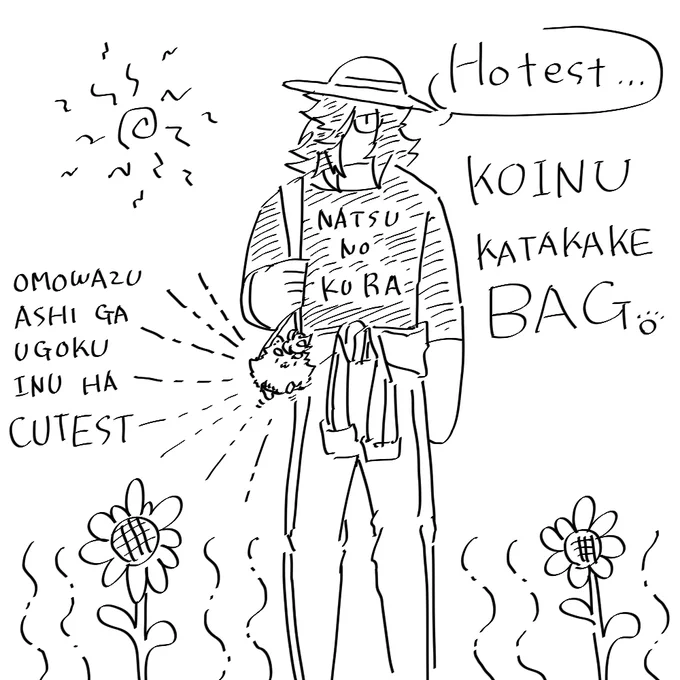 Hotest...
KOINU
KATAKAKE
BAG...
NATSU
NO
KURA
OMOWAZU
ASHI GA
UGOKU
INU HA
CUTEST